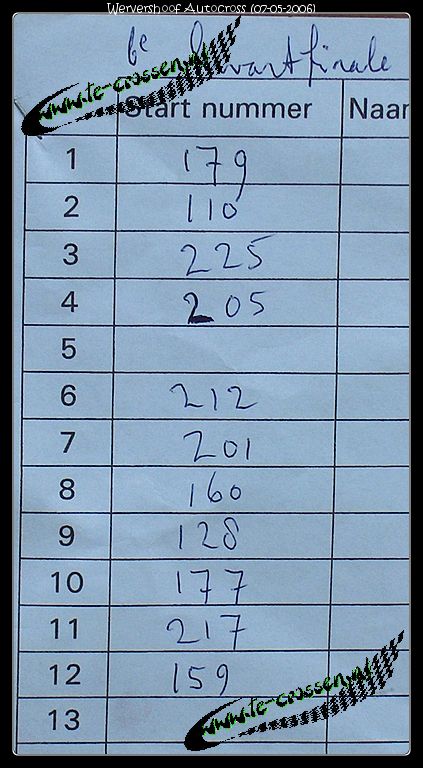 Wervershoof Autocross (07-05-2006)
6e kwartfinale
www.te-crossen.nl
Start nummer Naam
1 179
2 110
3 225
4 205
5
6 212
7 201
8 160
9 128
10 177
11 217
12 159
13
www.te-crossen.nl